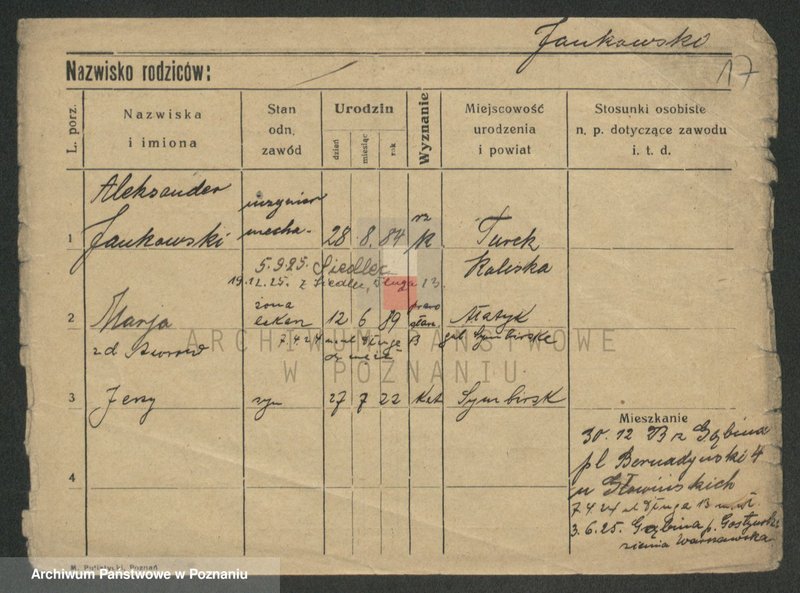 Jankowski
17
Nazwisko rodziców:
L. porz.
Nazwiska
i imiona
Stan
odn.
zawód
Urodzin
dzień
miesiąc
rok
Wyznanie
Miejscowość
urodzenia
i powiat
Stosunki osobiste
n. p. dotyczące zawodu
i. t. d.
1
Aleksander
Jankowski
inżynier
mecha-
28 8. 84
rz
K
Turek
Kaliska
5.9.25. Siedlec
19.12.25. z Siedlec, Długa 13.
2
Marja
zd
żona
12 6 89
prawo
sław.
gub. Symbirsk
7.4.24
3
Jerzy
syn
27 7 22
Kat
Symbirsk
4
Mieszkanie
30. 12 23 z Gąbina
pl Bernadyński 4
u Głowińskich
7.4.24 ul Długa 13
3.6.25. Gąbina p. Gostyński
ziemia Warszawska
ARCHIWUM PAŃSTWOWE
W POZNANIU
Poznań
Archiwum Państwowe w Poznaniu